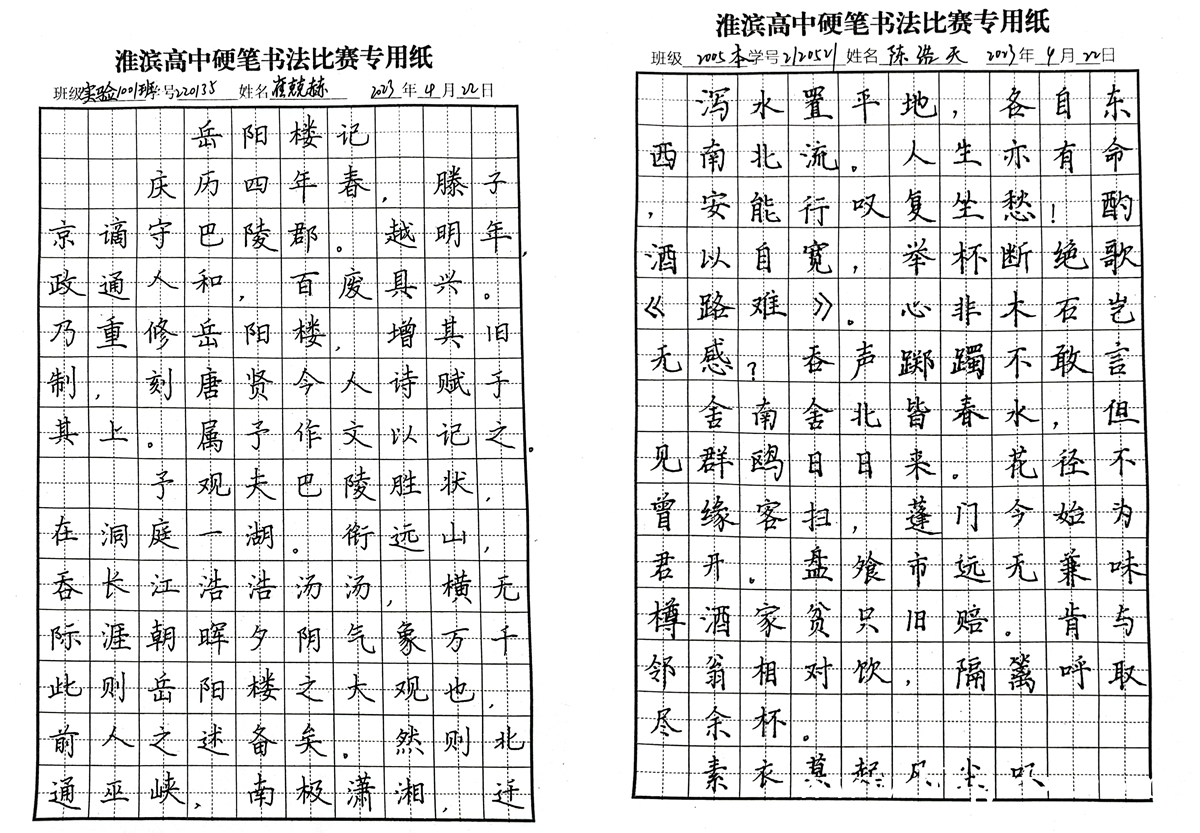 淮滨高中硬笔书法比赛专用纸
班级实验1001班学号220135 姓名崔兢赫 2023年4月22日
岳阳楼记
庆历四年春，滕子
京谪守巴陵郡。越明年，
政通人和，百废具兴。
乃重修岳阳楼，增其旧
制，刻唐贤今人诗赋于
其上。属予作文以记之。
予观夫巴陵胜状，
在洞庭一湖。衔远山，
吞长江浩浩汤汤，横无
际涯朝晖夕阴气象万千
此则岳阳楼之大观也，
前人之述备矣。然则北
通巫峡，南极潇湘，迁
淮滨高中硬笔书法比赛专用纸
班级2005本学号2120521姓名陈浩天 2023年4月22日
泻水置平地，各自东
西南北流。人生亦有命
，安能行叹复坐愁！酌
酒以自宽，举杯断绝歌
《路难》。心非木石岂
无感？吞声踯躅不敢言
舍南舍北皆春水，但
见群鸥日日来。花径不
曾缘客扫，蓬门今始为
君开。盘飧市远无兼味
樽酒家贫只旧赔。肯与
邻翁相对饮，隔篱呼取
尽余杯。
素衣莫起风尘叹